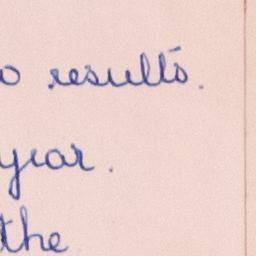 o results.
year.
the